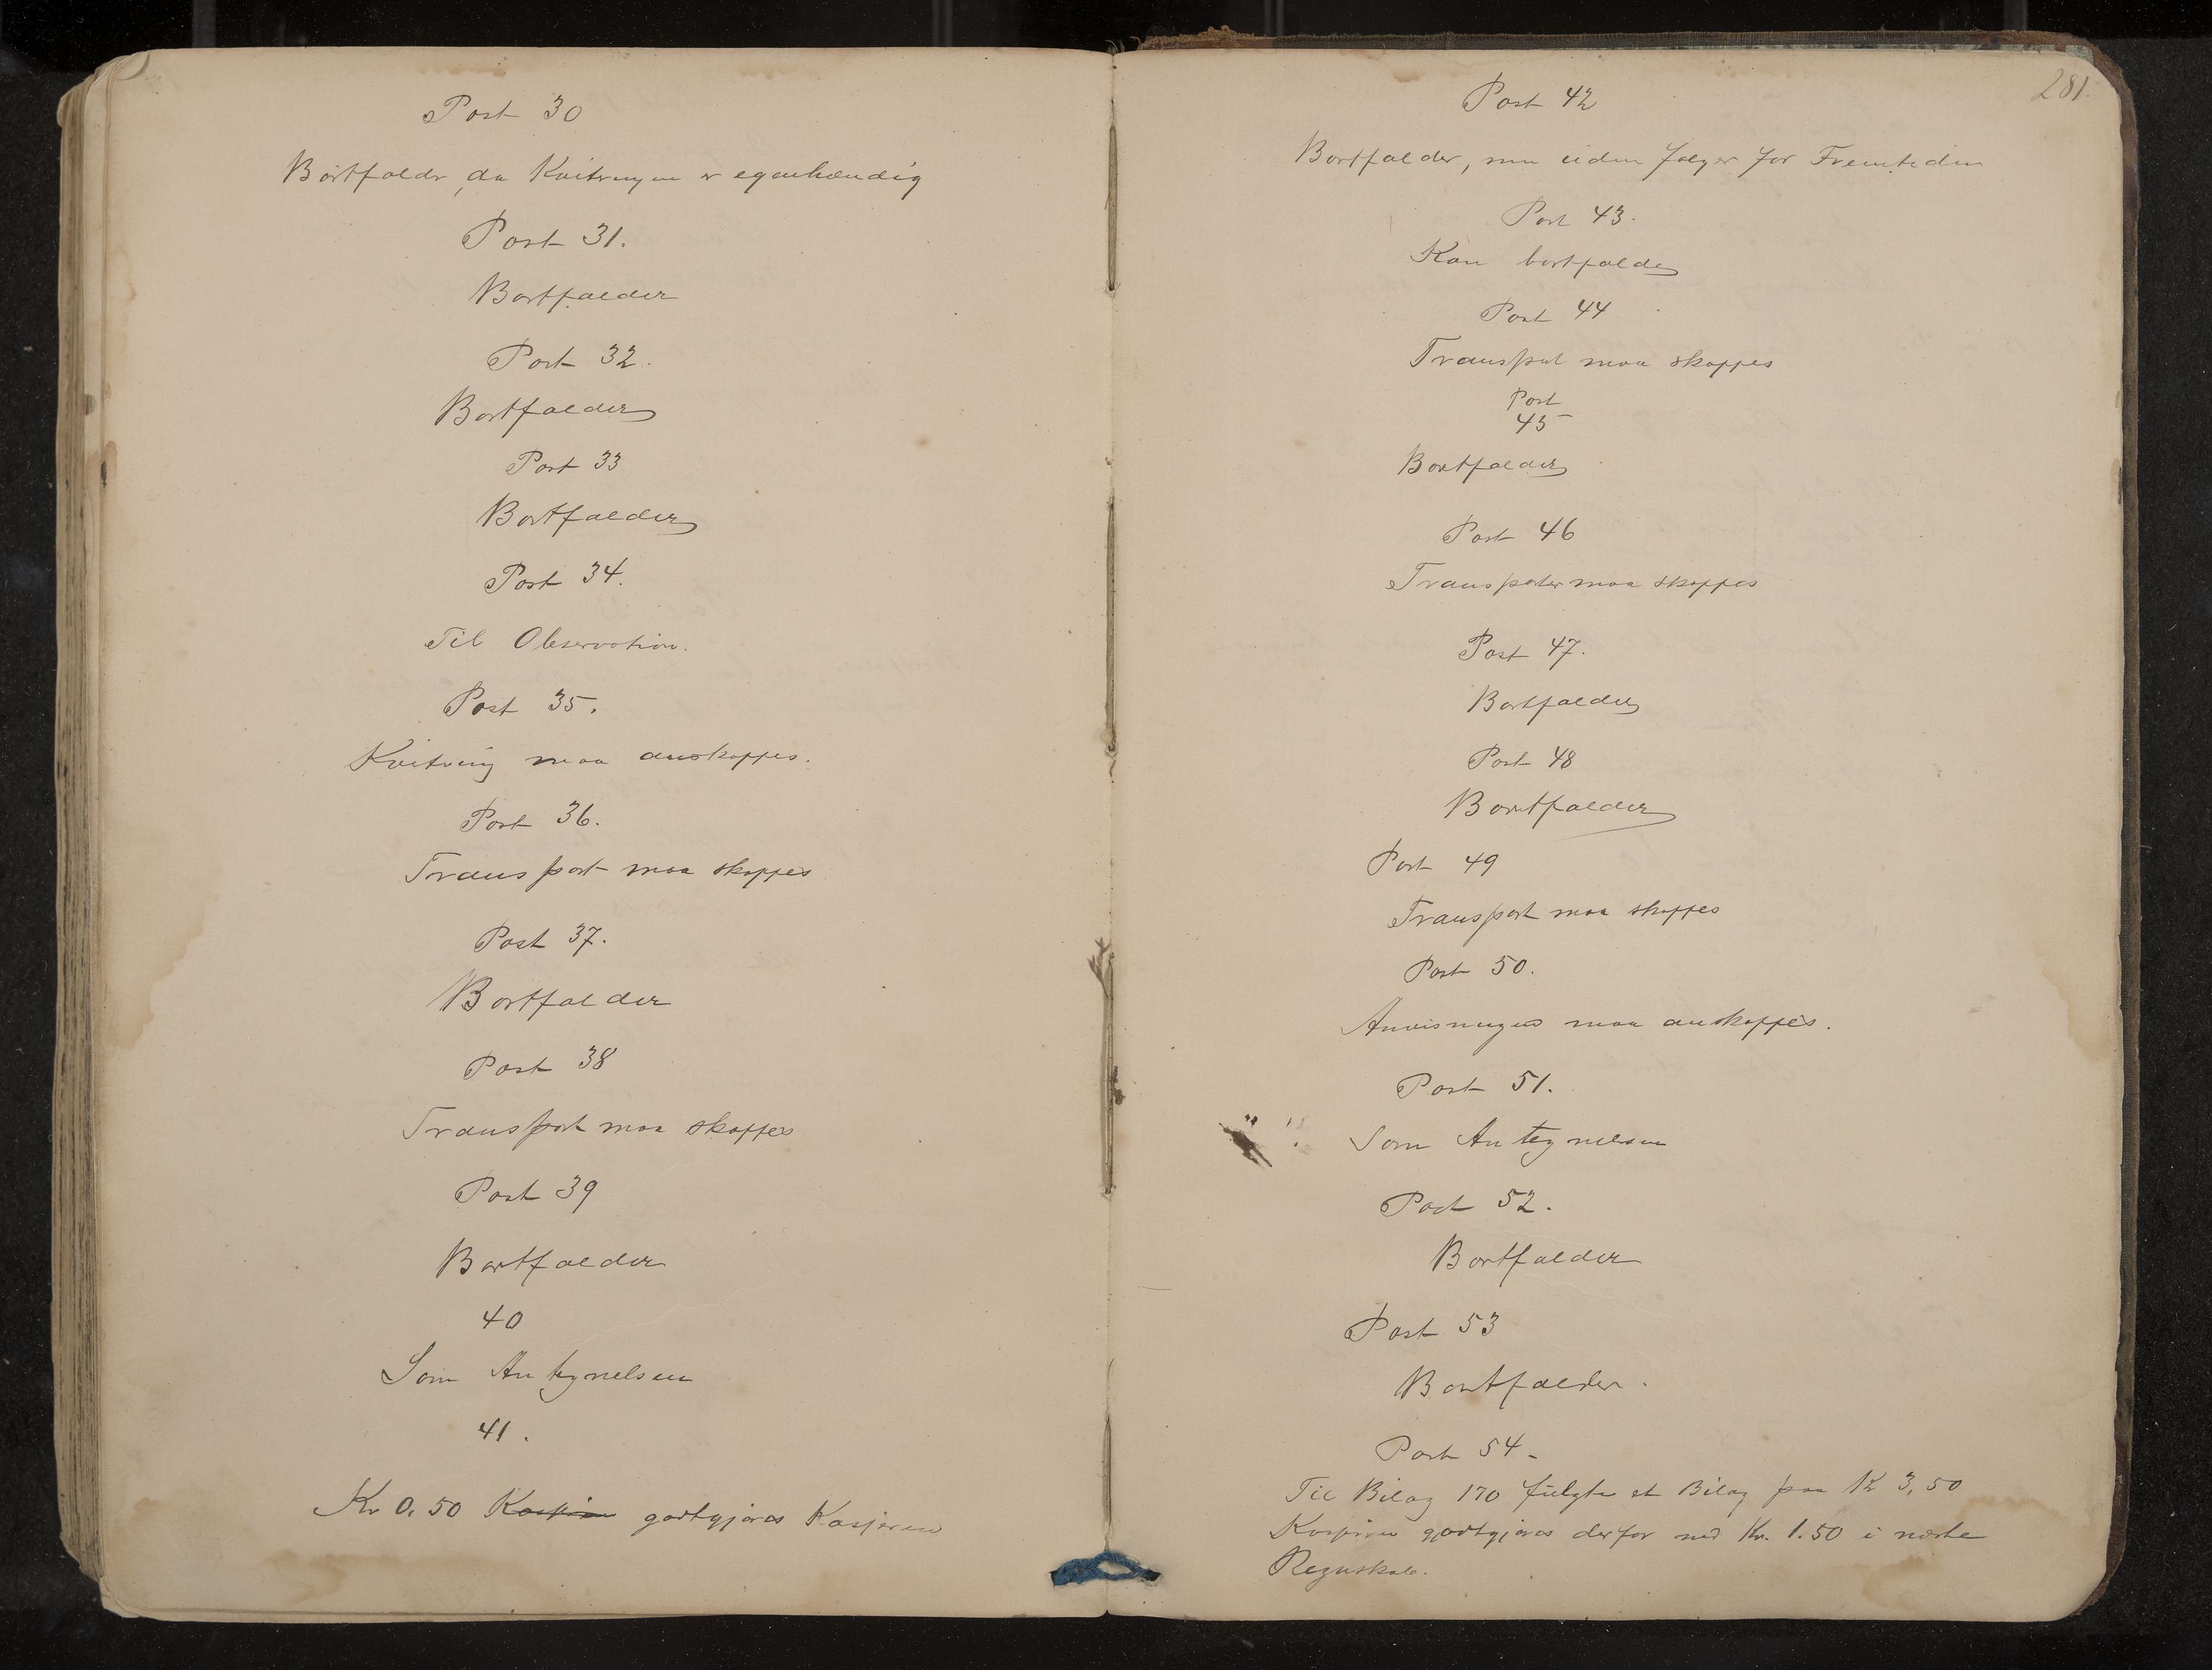 Post 30
Bortfalder, da Kvitringen er egenhændig
Post 31.
Bortfalder
Post 32.
Bortfalder
Post 33
Bortfalder
Post 34.
Til Observation.
Post 35.
Kvitring maa anskaffes.
Post 36.
Transport maa skaffes
Post 37.
Bortfalder
Post 38
Transport maa skaffes
Post 39
Bortfalder
40
Som Antegnelsen
41.
Kr 0.50 Kasseren godtgjøres Kasjeren
281.
Post 42
Bortfalder, men iiden følger for Fremtiden
Post 43.
Kan bortfalde
Post 44
Transport maa skaffes
Post
45
Bortfalder
Post 46
Transporter maa skaffes
Post 47.
Bortfalder
Post 48
Bortfalder
Post 49
Transport maa skaffes
Post 50.
Anvisninger maa anskaffes.
Post 51.
Som Antegnelsen
Post 52.
Bortfalder
Post 53
Bortfalder.
Post 54.
Til Bilag 170 fulgte et Bilag paa Kr 3,50
godtgjøres derfor med Kr. 1.50 i næste
Regnskab.